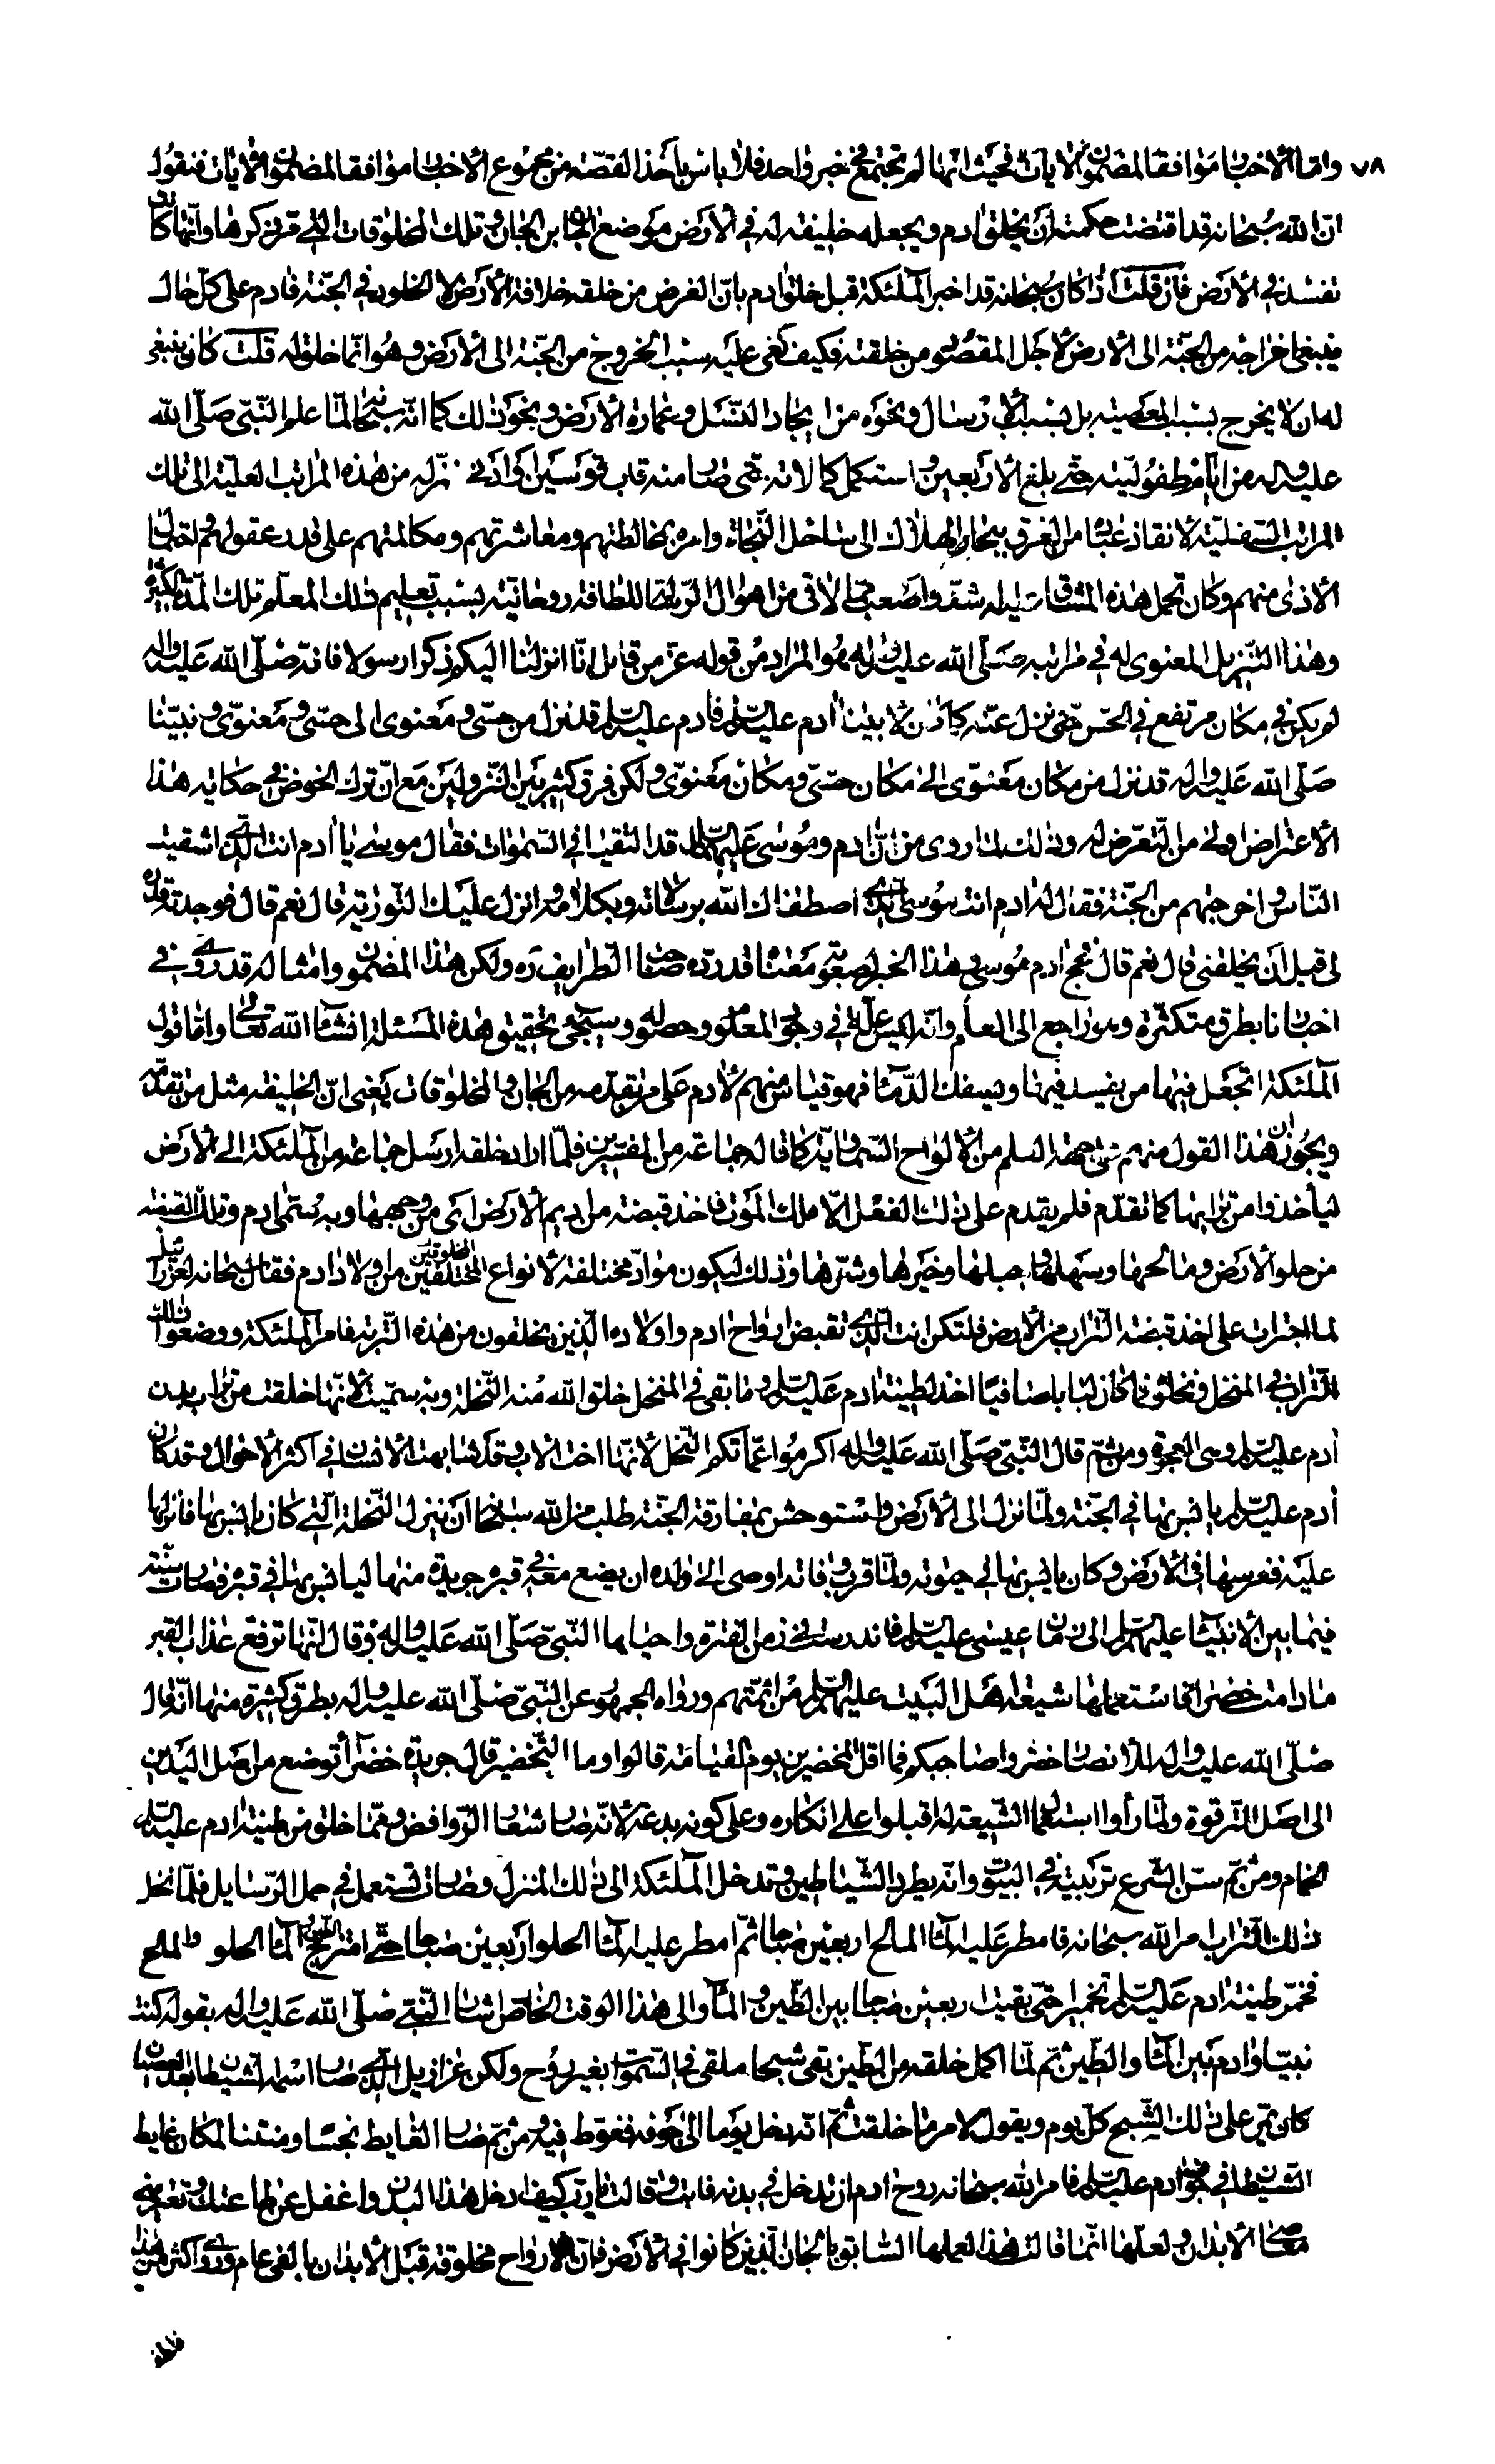 ٧٨ وامّا الأخبار موافقا لمضمون الايات فحيث انّها لم تجتمع في خبر واحد فلا باس باخذ القصّة من مجموع الأخبار موافقا لمضمون الأيات فنقول
انّ الله سبحانه قد اقتضت حكمته ان يخلق ادم ويجعله خليفة له في الأرض موضع الجان بن الجان وتلك المخلوقات التي مرّ ذكرها وانّها كانت
تفسد في الأرض فان قلت اذا كان سبحانه قد اخبر الملئكة قبل خلق ادم بانّ الغرض من خلقه خلافة الأرض لا الخلود في الجنّة فادم على كلّ حال
ينبغي اخراجه من الجنّة الى الأرض لأجل المقصود من خلقته فكيف نعى عليه سبب الخروج من الجنّة الى الأرض وهو انّما خلق له قلت كان ينبغي
له ان لا يخرج بسبب المعصية بل بسبب الأرسال ونحوه من ايجاد النسل وعمارة الأرض ونحو ذلك كما انّه سبحانه لمّا علم النّبي صلّى الله
عليه واله من ايّام طفوليّته حتّى بلغ الأربعين واستكمل كمالاته حتّى صار منه قاب قوسين او ادنى نزله من هذه المراتب العليّة الى تلك
المراتب السّفليّة لانقاذ عباده من الغرق ببحار الهلاك الى ساحل النّجاة وامره بمخالطتهم ومعاشرتهم ومكالمتهم على قدر عقولهم واحتمال
الأذى منهم وكان تحمل هذه المشاق لديه اشقّ واصعب ممّا لاقى من اهوال الرياضة للطافة روحانيّته بسبب تعليم ذلك المعلّم تلك المدّة الكثيرة
وهذا التنزيل المعنوي له في مراتبه صلّى الله عليه واله هو المراد من قوله عزّ من قائل انّا انزلنا اليكم ذكرا رسولا فانه صلّى الله عليه واله
لم يكن في مكان مرتفع في الحسّ حتّى نزل عنه كما كان لابينا ادم عليه السلم فادم عليه السلم قد نزل من حسّي ومعنوي الى حسّي ومعنوّي ونبيّنا
صلّى الله عليه واله قد نزل من مكان معنوّى الى مكان حسّي ومكان معنوّى ولكن فرق كثير بين النّزولين مع انّ ترك الخوض في حكاية هذا
الأعتراض اولى من التّعرّض له وذلك لما روى من انّ ادم وموسى عليهما السلم قد التقيا في السّموات فقال موسى يا ادم انت الّذي اشقيت
النّاس واخرجتهم من الجنّة فقال له ادم انت موسى الّذي اصطفاك الله برسالاته وبكلامه وانزل عليك التّورية قال نعم قال فوجدته قدّره
لي قبل ان يخلقني قال نعم قال فحجّ ادم موسى وهذا الخبر لصعوبة معناه قد ردّه صاحب الطرايف ره ولكن هذا المضمون وامثاله قد روى في
اخبارنا بطرق متكثّرة وهو راجع الى العلم وانّه ليس علّة في وجود المعلوم وحصوله وسيجئ تحقيق هذه المسئلة انشاء الله تعالى وامّا قول
الملئكة اتجعل فيها من يفسد فيها ويسفك الدّماء فهو قياس منهم لأدم على من تقدّمه من الجان والمخلوقات يعني انّ الخليفة مثل من تقدّمه
ويجوز ان هذا القول منهم من جهة العلم من الألواح السّماوية كما قاله جماعة من المفسّرين فلمّا اراد خلقه ارسل جماعة من الملئكة الى الأرض
ليأخذوا من ترابها كما تقدّم فلم يقدم على ذلك الفعل الّا ملك الموت فاخذ قبضة من اديم الأرض اى من وجهها وبه سمّى ادم وتلك القبضة
من حلو الأرض ومالحها وسهلها وجبلها وخيرها وشرّها وذلك ليكون موادّ مختلفة لأنواع المخلوقين المختلفين من اولاد ادم فقال سبحانه لعزرائيل
لما اجترات على اخذ قبضة التّراب من الأرض فلتكن انت الّذي تقبض ارواح ادم واولاده الّذين يخلقون من هذه التّربة فامر الملئكة ووضعوا ذلك
التّراب في المنخل ونخلوه فما كان لبابا صافيا اخذ لطينة ادم عليه السلم وما بقى في المنخل خلق الله منه النّخلة وبه سمّيت لانّها خلقت من تراب بدن
أدم عليه السلم وهي العجوة ومن ثمّ قال النّبي صلّى الله عليه واله اكرموا عمّاتكم النّخل لأنّها اخت الأب وقد شابهت الأنسان في اكثر الأحوال وقد كان
أدم عليه السلم يانس بها في الجنّة ولمّا نزل الى الأرض واستوحش بمفارقة الجنّة طلب من الله سبحانه ان ينزل النّخلة الّتي كان يانس بها فانزلها
عليه فغرسها في الأرض وكان يانس بها في حيوته ولمّا قرب وفاته اوصى الى ولده ان يضع معه في قبره جريدة منها ليانس بها في قبره فصارت سنّة
فيما بين الأنبياء عليهم السلم الى زمان عيسى عليه السلم فاندرست في زمن الفترة واحياها النّبي صلّى الله عليه واله وقال انّها ترفع عذاب القبر
ما دامت خضراء فاستعملها شيعة اهل البيت عليهم السلم من ائمّتهم ورواه الجمهور عن النّبيّ صلّى الله عليه واله بطرق كثيرة منها انّه قال
صلّى الله عليه واله للأنصار خضروا صاحبكم فما اقلّ المخضرين يوم القيامة قالوا وما التّخضير قال جريدة خضراء توضع من اصل اليدين
الى اصل الترقوة ولمّا رأوا استعمال الشّيعة له اقبلوا على انكاره وعلى كونه بدعة لانّه صار شعار الرّوافض وممّا خلق من طينة ادم عليه السلم
الحمام ومن ثمّ سنّ الشّرع تربيته في البيوت وانّه يطرد الشّياطين وتدخل الملئكة الى ذلك المنزل وصارت تستعمل في حمل الرّسايل فلمّا نخل
ذلك التّراب امر الله سبحانه فامطر عليه الماء المالح اربعين صباحا ثمّ امطر عليه الماء الحلو اربعين صباحا حتّى امتزج الماء الحلو والملح
فخمّر طينة ادم عليه السلم تخميرا حتّى بقيت اربعين صباحا بين الطّين والماء والى هذا الوقت الخاص اشار النّبي صلّى الله عليه واله بقوله كنت
نبيّا وادم بين الماء والطّين ثمّ لمّا اكمل خلقه من الطّين بقى شبحا ملقى في السّموات بغير روح ولكن عزازيل الّذي صار اسمه الشّيطان بعد العصيان
كان يمرّ على ذلك الشّبح كلّ يوم ويقول لامر ما خلقت ثمّ انّه دخل يوما الى جوفه فغوّط فيه ومن ثمّ صار الغايط نجسا ومنتنا لمكان غايط
الشّيطان في جوف ادم عليه السلم فامر الله سبحانه روح ادم ان تدخل في بدنه فابت وقالت يا ربّ كيف ادخل هذا البدن واغفل عن طاعتك وتعترضني
معاصي الأبدان ولعلّها انّما قالت هذا لعلمها السّابق بالجان الّذين كانوا في الأرض فانّ الأرواح مخلوقة قبل الأبدان بالفي عام وروى اكثر من هذا